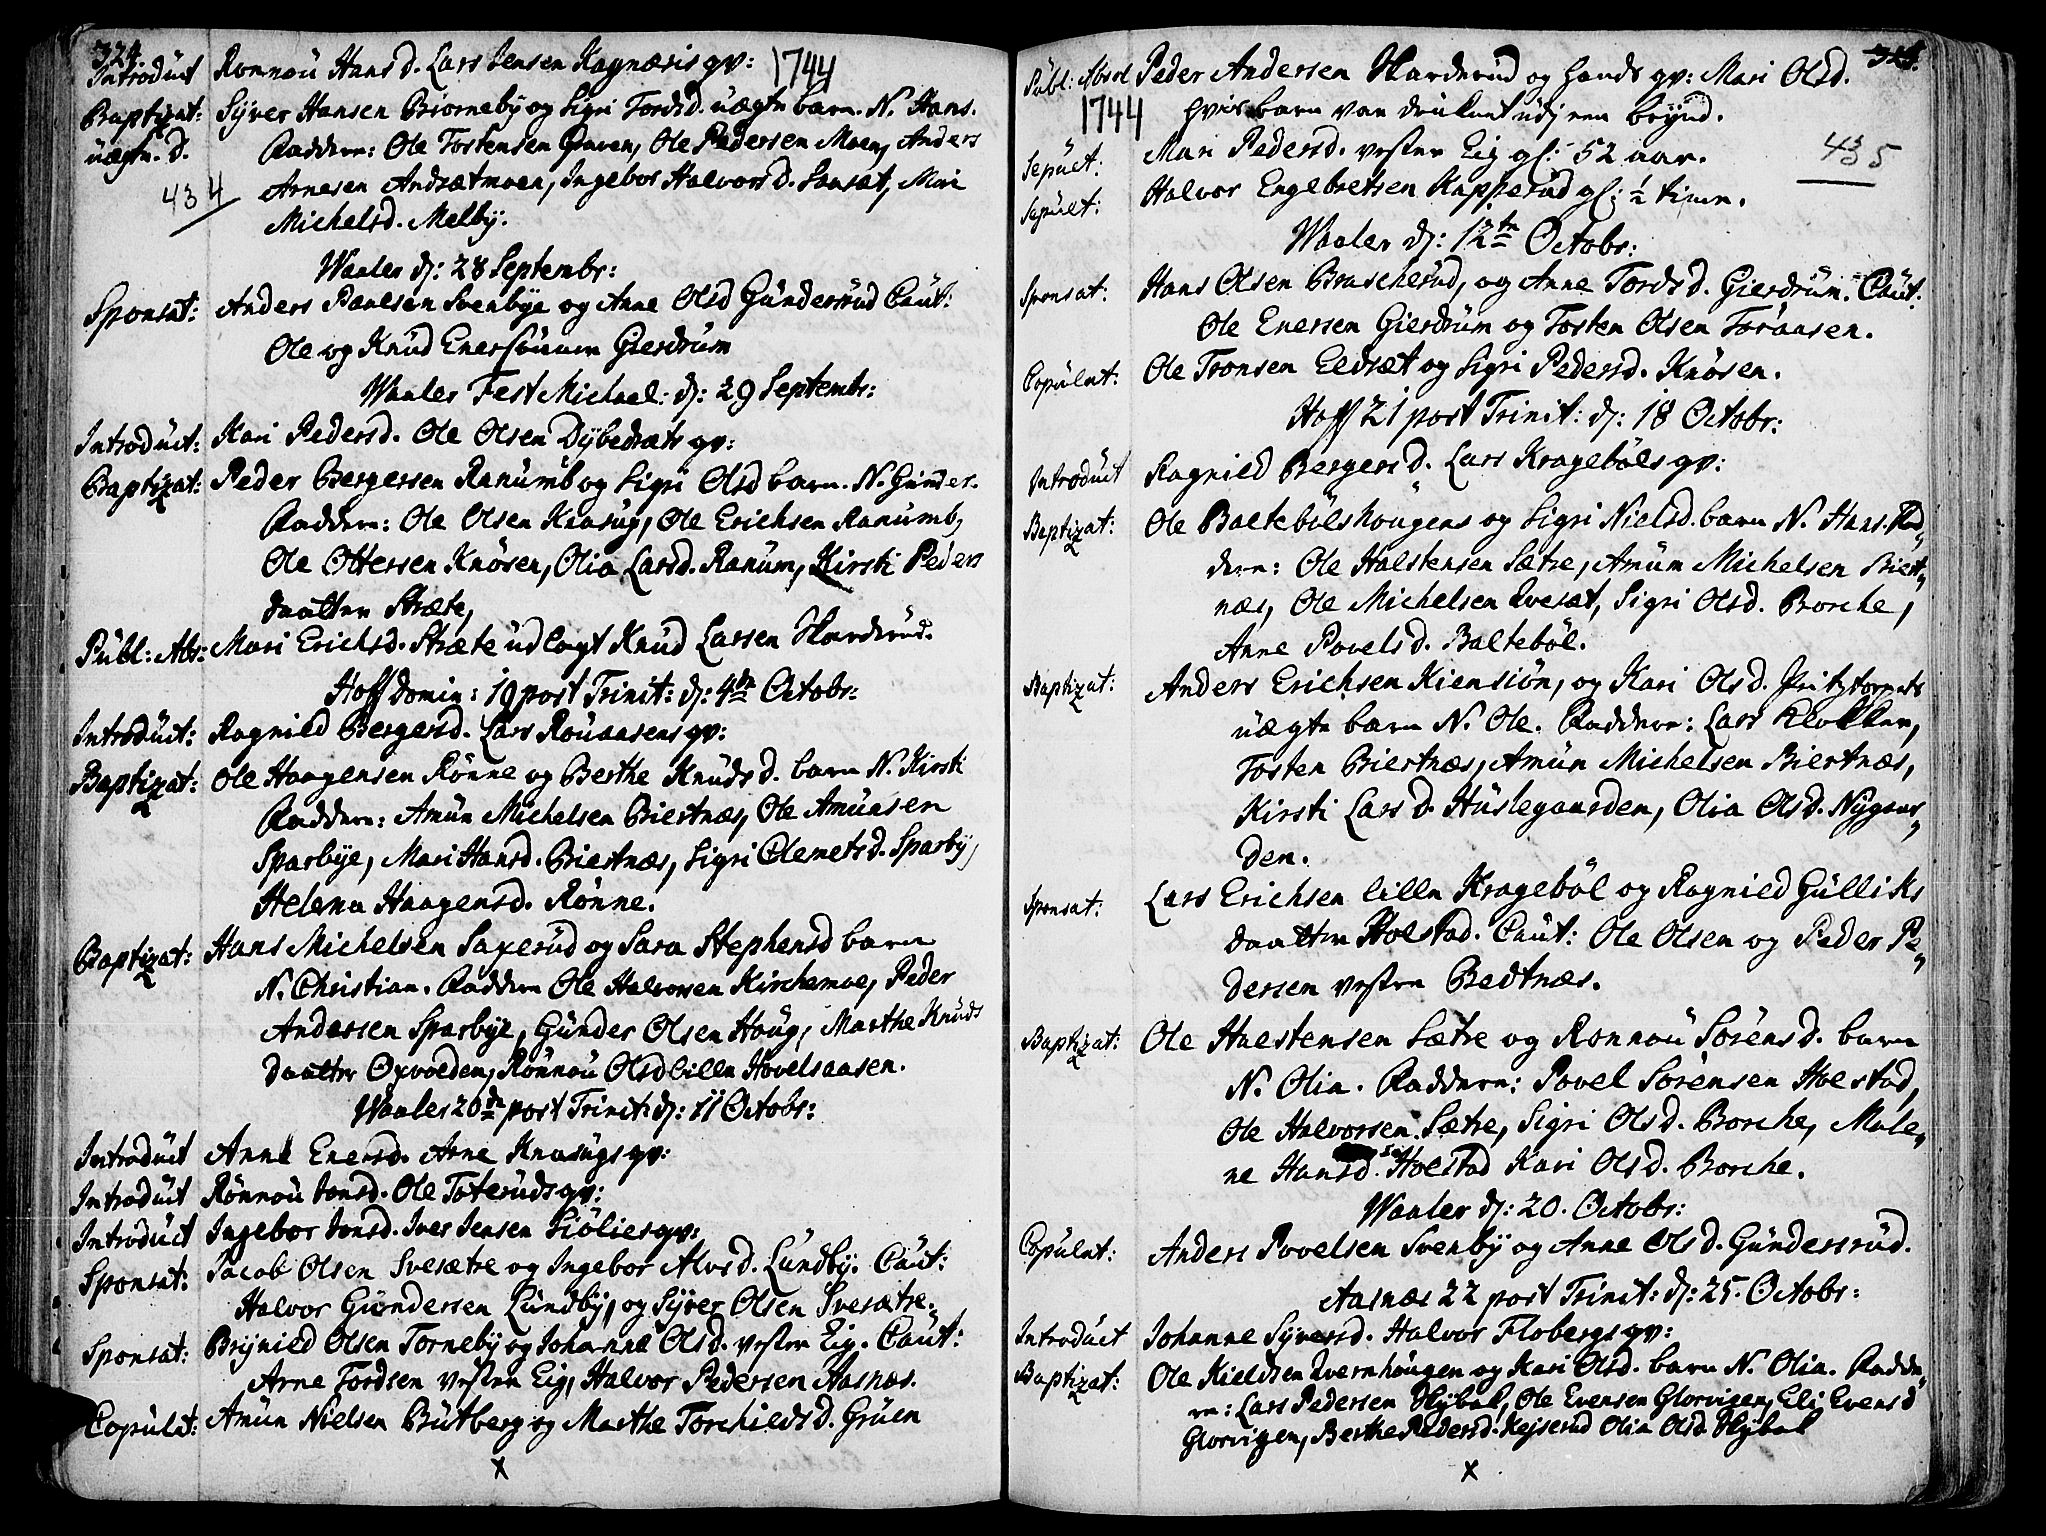 324
Introduct Ronnou Hansd. Lars Jensen Kagnæsis qv: 1744
Baptizat: Syver Hansen Biorneby og Sigri Tordsd. uægte barn. N. Hans.
uægte. d. Faddere: Ole Tostensen Graven, Ole Pedersen Moen, Anders
434 Arnesen Andsætmoen, Ingebor Halvorsd. Sonsæt, Mari
Michelsd. Melby.
Waaler d: 28 Septembr:
Sponsat: Anders Paulsen Svenbye og Anne Olsd Gundersrud Caut:
Ole og Knud Enersønner Gierdrum
Waaler Fest Michael: d: 29 Septembr:
Introduct: Kari Pedersd. Ole Olsen Dybedræts qv:
Baptizat: Peder Bergersen Ranumb og Sigri Olsd barn. N. Gunder.
Faddere: Ole Olsen Knasug, Ole Erichsen Ranumb,
Ole Ottersen Knøsen, Olia Larsd. Ranum, Kirsti Peders
daatter Stræte,
Publ: Abs: Mari Erichsd. Stræte udlagt Knud Larsen Skarderud.
Hoff Domin: 19 post Trinit: d: 4de Octobr:
Introduct: Ragnild Bergersd. Lars Rouaasens qv:
Baptizat: Ole Haagensen Rønne og Berthe Knudsd. barn N. Kirsti
Faddere: Amun Michelsen Biertnæs, Ole Amunsen
Sparbye, Mari Hansd. Biertnæs, Sigri Clemetsd. Sparby,
Helena Haagensd. Rønne.
Baptizat: Hans Michelsen Saxerud og Sara Stephensd barn
N. Christian. Faddere Ole Halvorsen Kirchemoe, Peder
Andersen Sparbye, Gunder Olsen Houg, Marthe Knuds
daatter Opvolden, Rønnou Olsd lille Hovelsaasen.
Waaler 20de post Trinit: d: 11 Octobr:
Introduct Anne Enersd. Arne Knasugs qv:
Introduct Rønnou Jonsd. Ole Toteruds qv:
Introduct Ingebor Jonsd. Iver Jensen Siølies qv:
Sponsat: Jacob Olsen Svesætre og Ingebor Alvsd. Lundby. Caut:
Halvor Gundersen Lundby, og Syver Olsen Svesætre.
Sponsat: Brynild Olsen Torneby og Johanne Olsd. vestre Eig. Caut:
Arne Tordsen vestre Eig, Halvor Pedersen Aasnæs.
Copulat: Amun Nielsen Butberg og Marthe Torchildsd. Gruen
x
Publ: Absol Peder Andersen Skarderud og hands qv: Mari Olsd.
1744 hvis barn var druknet udj een brynd.
Sepult: Mari Pedersd. vestre Eig gl: 52 aar. 435
Sepult: Halvor Engebretsen Kapperud gl: ½ time.
Waaler d: 12te Octobr:
Sponsat: Hans Olsen Brascherud, og Anne Tordsd. Gierdrum. Caut:
Ole Enersen Gierdrum og Tosten Olsen Toraasen.
Copulat: Ole Tronsen Eldsæt og Sigri Pedersd. Knøsen.
Hoff 21 post Trinit: d: 18 Octobr:
Introduct Ragnild Bergersd. Lars Kragebøls qv:
Baptizat: Ole Baltebølshougens og Sigri Nielsd. barn N. Hans. Fad„
dere: Ole Halstensen Sætre, Amun Michelsen Biert„
næs, Ole Michelsen Qvesæt, Sigri Olsd. Borche,
Anne Povelsd. Baltebøl.
Baptizat: Anders Erichsen Kiensiøn, og Kari Olsd. Pritztorpets
uægte barn N. Ole. Faddere: Lars Klokker,
Tosten Biertnæs, Amun Michelsen Biertnæs,
Kirsti Larsd. Huslegaarden, Olia Olsd. Nygaar„
den.
Sponsat: Lars Erichsen lille Kragebøl og Ragnild Gulliks
daatter Holstad. Caut: Ole Olsen og Peder Pe„
dersen vestre Bedtnæs.
Baptizat: Ole Halstensen Sætre og Ronnou Sørensd. barn
N. Olia. Faddere: Povel Sørensen Holstad,
Ole Halvorsen Sætre, Sigri Olsd. Borche, Male„
ne Hansd. Holstad Kari Olsd. Borche.
Waaler d: 20. Octobr:
Copulat: Anders Povelsen Svenby og Anne Olsd. Gundersrud.
Aasnæs 22 post Trinit: d: 25. Octobr:
Introduct Johanne Syversd. Halvor Flobergs qv:
Baptizat: Ole Kieldsen Qvernhougen og Kari Olsd. barn N. Olia. Fadde„
re: Lars Pedersen Skybak, Ole Evensen Glorvigen, Eli Evensd
Glorvigen, Berthe Pedersd. Kejserud Olia Olsd. Skybak
x